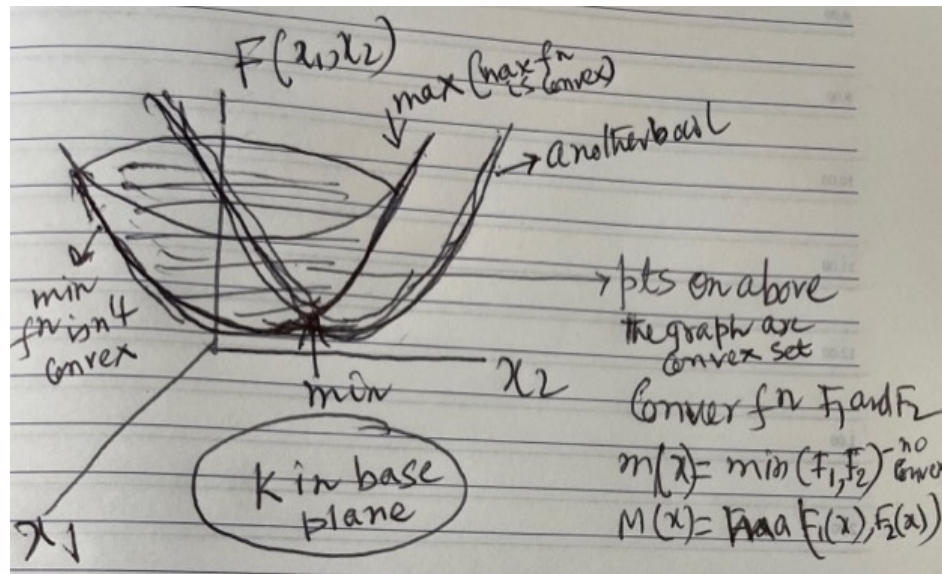 F(x1,x2)
max (max fn
is convex)
another bowl
min
fn isn't
convex
pts on above
the graph are
convex set
min
x2
Convex fn F1 and F2
m(x) = min (F1,F2) - no
K in base
plane
M(x) = (F1(x), F2(x))
x1